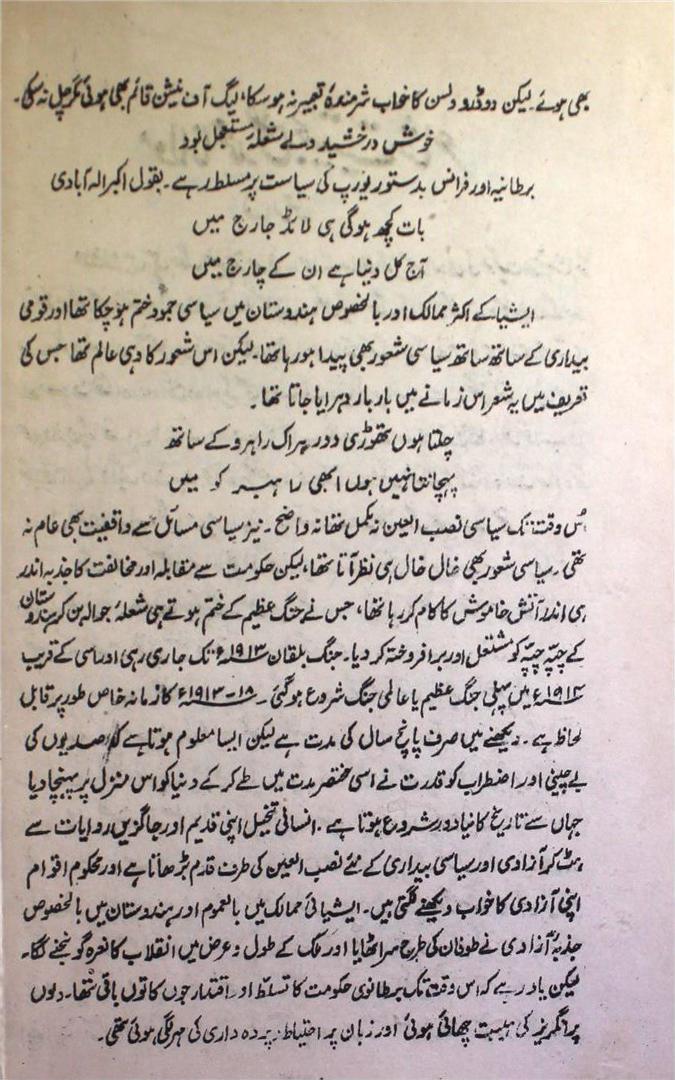 بھی ہوئے۔ لیکن ووڈرو ولسن کا خواب شرمندۂ تعبیر نہ ہو سکا، لیگ آف نیشن قائم بھی ہوئی مگر چل نہ سکی۔
خوش درخشید ولے شعلۂ مستعجل بود
برطانیہ اور فرانس بدستور یورپ کی سیاست پر مسلط رہے۔ بقول اکبر الہ آبادی
بات کچھ ہوگی ہی لائڈ جارج میں
آج کل دنیا ہے ان کے چارج میں
ایشیا کے اکثر ممالک اور بالخصوص ہندوستان میں سیاسی جمود ختم ہو چکا تھا اور قومی
بیداری کے ساتھ ساتھ سیاسی شعور بھی پیدا ہو رہا تھا۔ لیکن اس شعور کا وہی عالم تھا جس کی
تعریف میں یہ شعر اس زمانے میں بار بار دہرایا جاتا تھا۔
چلتا ہوں تھوڑی دور ہر اک راہرو کے ساتھ
پہچانتا نہیں ہوں ابھی راہبر کو میں
اس وقت تک سیاسی نصب العین نہ مکمل تھا نہ واضح۔ نیز سیاسی مسائل سے واقفیت بھی عام نہ
تھی۔ سیاسی شعور بھی خال خال ہی نظر آتا تھا، لیکن حکومت سے مقابلہ اور مخالفت کا جذبہ اندر
ہی اندر آتش خاموش کا کام کر رہا تھا، جس نے جنگ عظیم کے ختم ہوتے ہی شعلۂ جوالہ بن کر ہندوستان
کے چپّہ چپّہ کو مشتعل اور برافروختہ کر دیا۔ جنگ بلقان ۱۹۱۳ء تک جاری رہی اور اسی کے قریب
۱۹۱۴ء میں پہلی جنگ عظیم یا عالمی جنگ شروع ہو گئی۔ ۱۸-۱۹۱۳ء کا زمانہ خاص طور پر قابل
لحاظ ہے۔ دیکھنے میں صرف پانچ سال کی مدت ہے لیکن ایسا معلوم ہوتا ہے کہ صدیوں کی
بے چینی اور اضطراب کو قدرت نے اسی مختصر مدت میں طے کر کے دنیا کو اس منزل پر پہنچا دیا
جہاں سے تاریخ کا نیا دور شروع ہوتا ہے۔ انسانی تخیل اپنی قدیم اور جاگزیں روایات سے
ہٹ کر آزادی اور سیاسی بیداری کے نئے نصب العین کی طرف قدم بڑھاتا ہے اور محکوم اقوام
اپنی آزادی کا خواب دیکھنے لگتی ہیں۔ ایشیائی ممالک میں بالعموم اور ہندوستان میں بالخصوص
جذبۂ آزادی نے طوفان کی طرح سر اٹھایا اور ملک کے طول و عرض میں انقلاب کا نعرہ گونجنے لگا۔
لیکن یاد رہے کہ اس وقت تک برطانوی حکومت کا تسلّط اور اقتدار جوں کا توں باقی تھا۔ دلوں
پر انگریز کی ہیبت چھائی ہوئی اور زبان پر احتیاط و پردہ داری کی مہر لگی ہوئی تھی۔